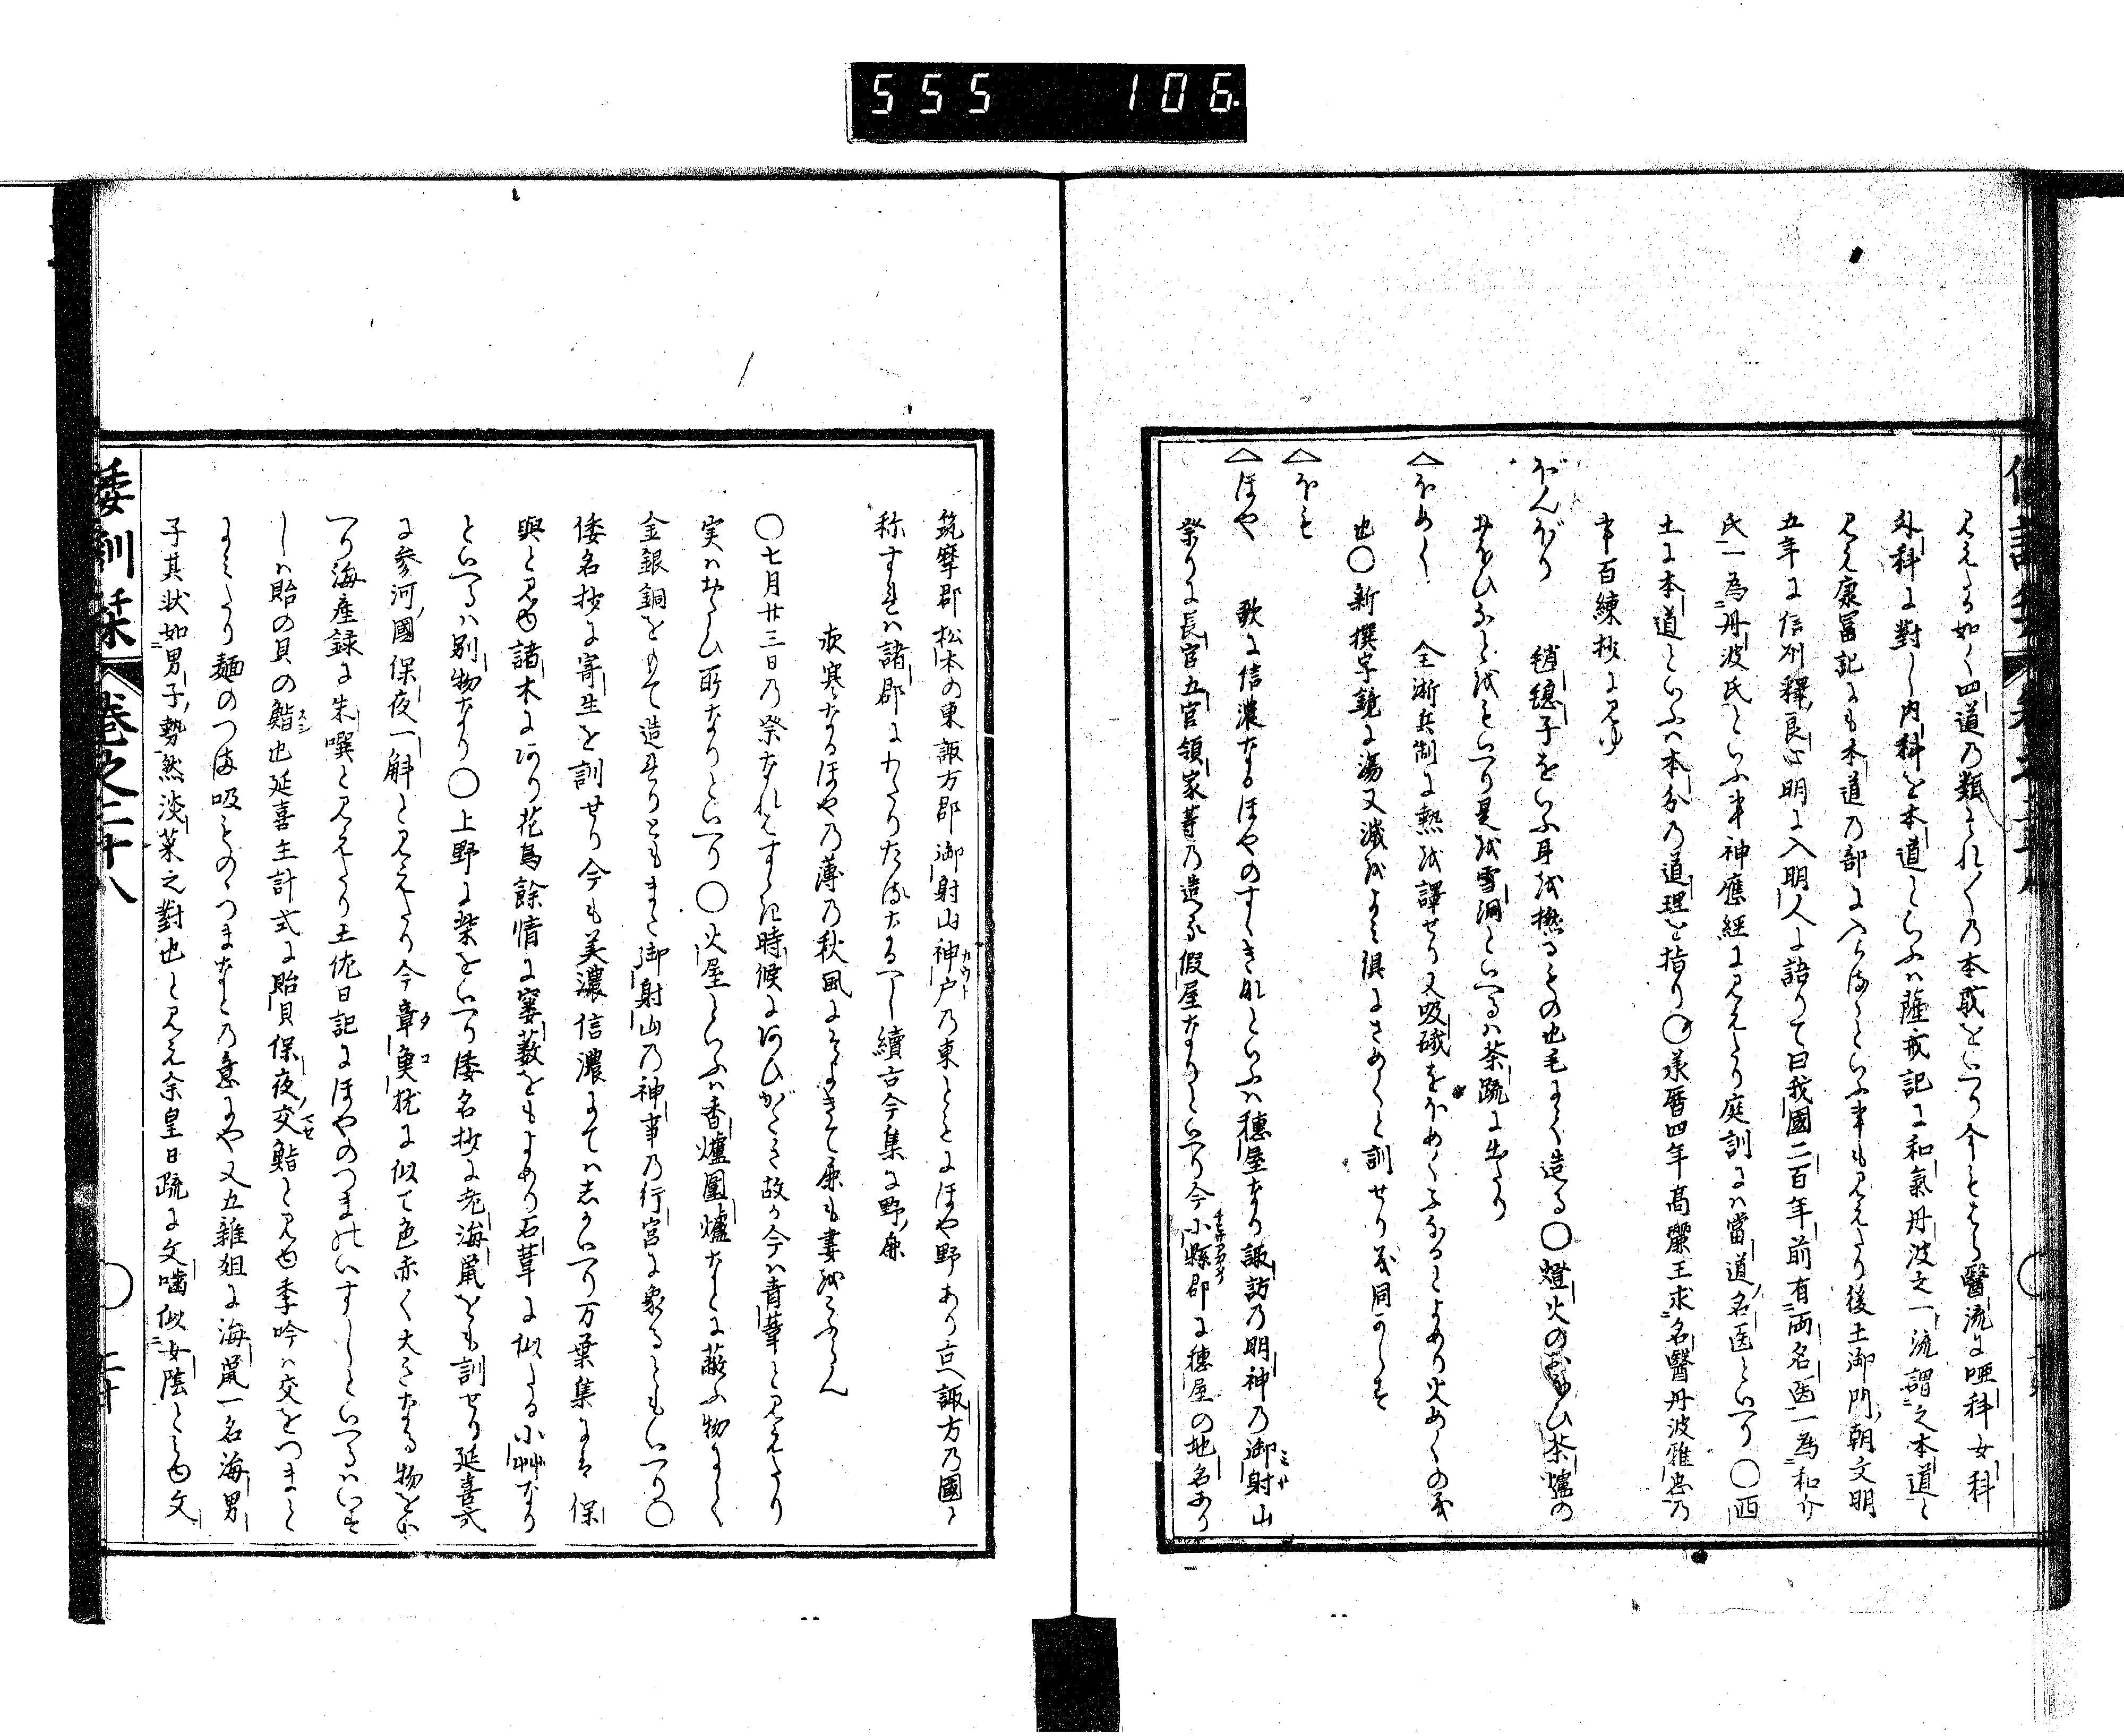 555 106.
見えたる如く四道乃類それ〳〵乃本義をいへり今もはら醫流に唖科女科
外科に對し内科を本道といふハ薩戒記に和氣丹波之一流謂之本道と
見え康冨記にも本道乃部に入らすといふ事も見えたり後土御門朝文明
五年に信州釋良心明に入明人に語りて曰我國二百年前有両名医一為和介
氏一為丹波氏といふ事神應經に見えたり庭訓にハ當道名医といへり〇西
土に本道といふハ本分乃道理を指り〇義暦四年高麗王求名醫丹波雅忠乃
事百練抄に見ゆ
ぼんぼり 稍繐子をいふ耳を撚るもの也毛にて造る〇燈火のおほひ茶爐の
おほひなとをもいへり是を雪洞といへるハ茶疏に出たり
△ほめく 全浙兵制に熱を譯せり又吸硪をほめくふなるとよめり火めくの義
也〇新撰字鏡に湯又滅をよミ倶にさめくと訓せり義同かしら
△ほも
△ほや 歌に信濃なるほやのすゝきなといふハ穂屋なり諏訪乃明神乃御射山
祭りに長官五官領家等乃造る假屋なりといへり今小縣郡に穂屋の地名あり
筑摩郡松本の東諏方郡御射山神戸乃東ともにほや野あり古へ諏方乃國と
称すれハ諸郡にわたりたるなるへし續古今集に野鹿
夜寒なるほや乃薄乃秋風にそよきて鹿も妻をこふらん
〇七月廿三日乃祭なれとすゝき時候にあひがたき故に今ハ青葦と見えたり
実ハおほひ所なりといへり〇火屋といふハ香爐圍爐なとに蔽ふ物にして
金銀銅をもて造れりともまた御射山乃神事乃行宮に象るともいへり〇
倭名抄に寄生を訓せり今も美濃信濃にてハしかいへり万葉集には保
與と見ゆ諸木にあり花鳥餘情に窶薮をもよめり石葦に似たる小艸なり
といへるハ別物なり〇上野に柴をいへり倭名抄に老海鼠をも訓せり延喜式
に参河國保夜一斛と見えたり今章魚枕に似て色赤く大きなる物をい
へり海産録に朱噀と見えたり土佐日記にほやのつまのいすしといへるハいす
しハ貽の貝の鮨也延喜主計式に貽貝保夜交鮨と見ゆ季吟ハ交をつまと
よミたり麺のつま吸ものゝつまなと乃意にや又五雑俎に海鼠一名海男
子其状如男子勢然淡菜之對也と見え余皇日疏に文嚙似女陰とも見ゆ文
倭訓栞 巻之二十八
二十